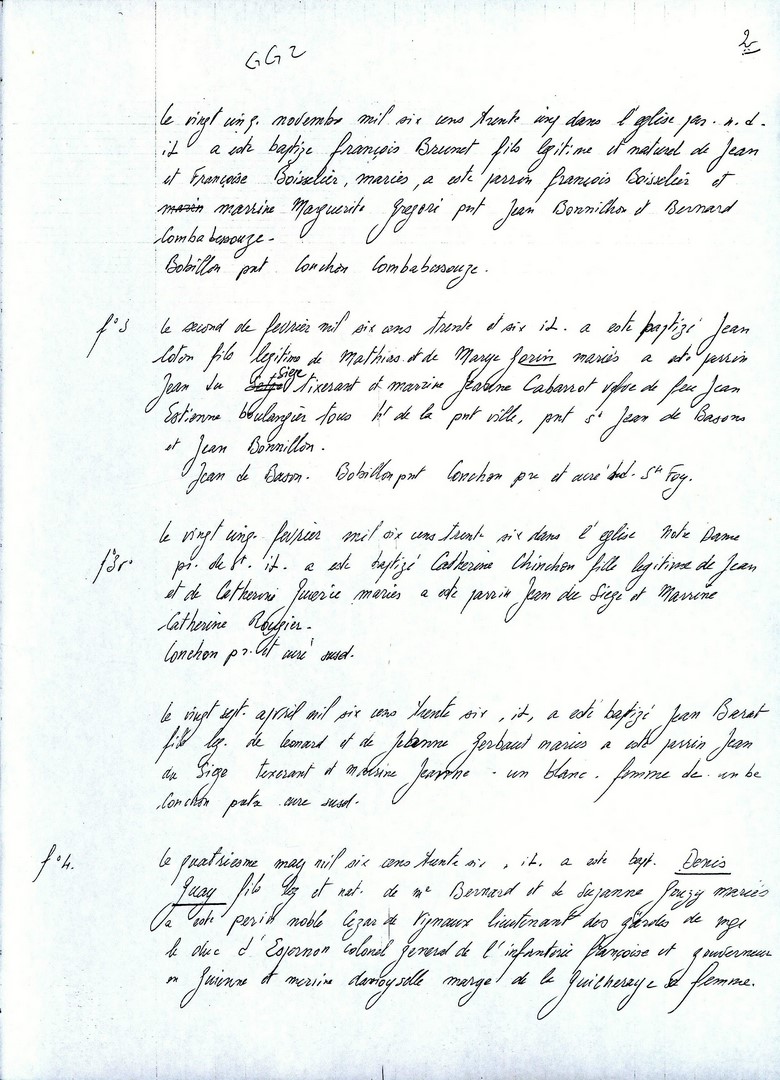 GG2
2
le vingt cinq. novembre mil six cens trente cinq dans l'eglise par. n. d.
it a este baptize françois Brunet fils legitime et naturel de Jean
et Françoise Boisselier, mariés, a este parrin françois Boisselier et
marrine Marguerite Gregori pnt Jean Bonnilhon et Bernard
Combabessouze -
Bobillon pnt Conchon Combabessouze.
f° 3 le second de fevrier mil six cens trente et six it. a este baptizé Jean
Coton fils legitime de Mathias et de Marye Gorin mariés a este parrin
Jean du Siege tixerant et marrine Jeanne Cabarrot vefve de feu Jean
Estienne boulangier tous ht de la pnt ville, pnt sr Jean de Basons
et Jean Bonnillon.
Jean de Bason. Bobillon pnt Conchon pre et curé Ste Foy.
le vingt cinq. fevrier mil six cens trente six dans l'eglise Notre Dame
f° 3v° pi. de St. it. a este baptizé Catherine Chinchon fille legitime de Jean
et de Catherine mariés a este parrin Jean du Siege et Marrine
Catherine Rougier -
Conchon pr. et curé susd.
le vingt sept. apvril mil six cens trente six, it, a esté baptizé Jean Barat
fils leg. de Leonard et de Jeanne Gerbaut mariés a esté parrin Jean
du Siege texerant et marrine Jeanne - un blanc. femme de un be
Conchon curé susd.
f° 4. le quatriesme may mil six cens trente six, it. a este bapt. Denis
Quay fils leg et nat. de me Bernard et de Suzanne Gouzy mariés
a este perin noble Cezar de Vignaux lieutenant des gardes de mgr
le duc d'Espernon Colonel general de l'infanterie françoise et gouverneur
en Guienne et merine damoyselle marge de la Guicheraye sa femme.